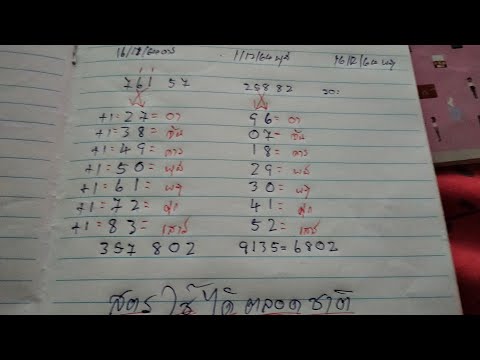 16/11/64 อาร 1/12/64 พุธ 16/12/64 พฤ
761 57 258 82 รอ
+1=27= อา 96= อา
+1=38= จัน 07= จัน
+1=49= อาร 18= อาร
+1=50= พุธ 29= พุธ
+1=61= พฤ 30= พฤ
+1=72= ศุก 41= ศุก
+1=83= เสาร์ 52= เสาร์
357 802 9135=6802
สูตรใช้ได้ตลอดชาติ